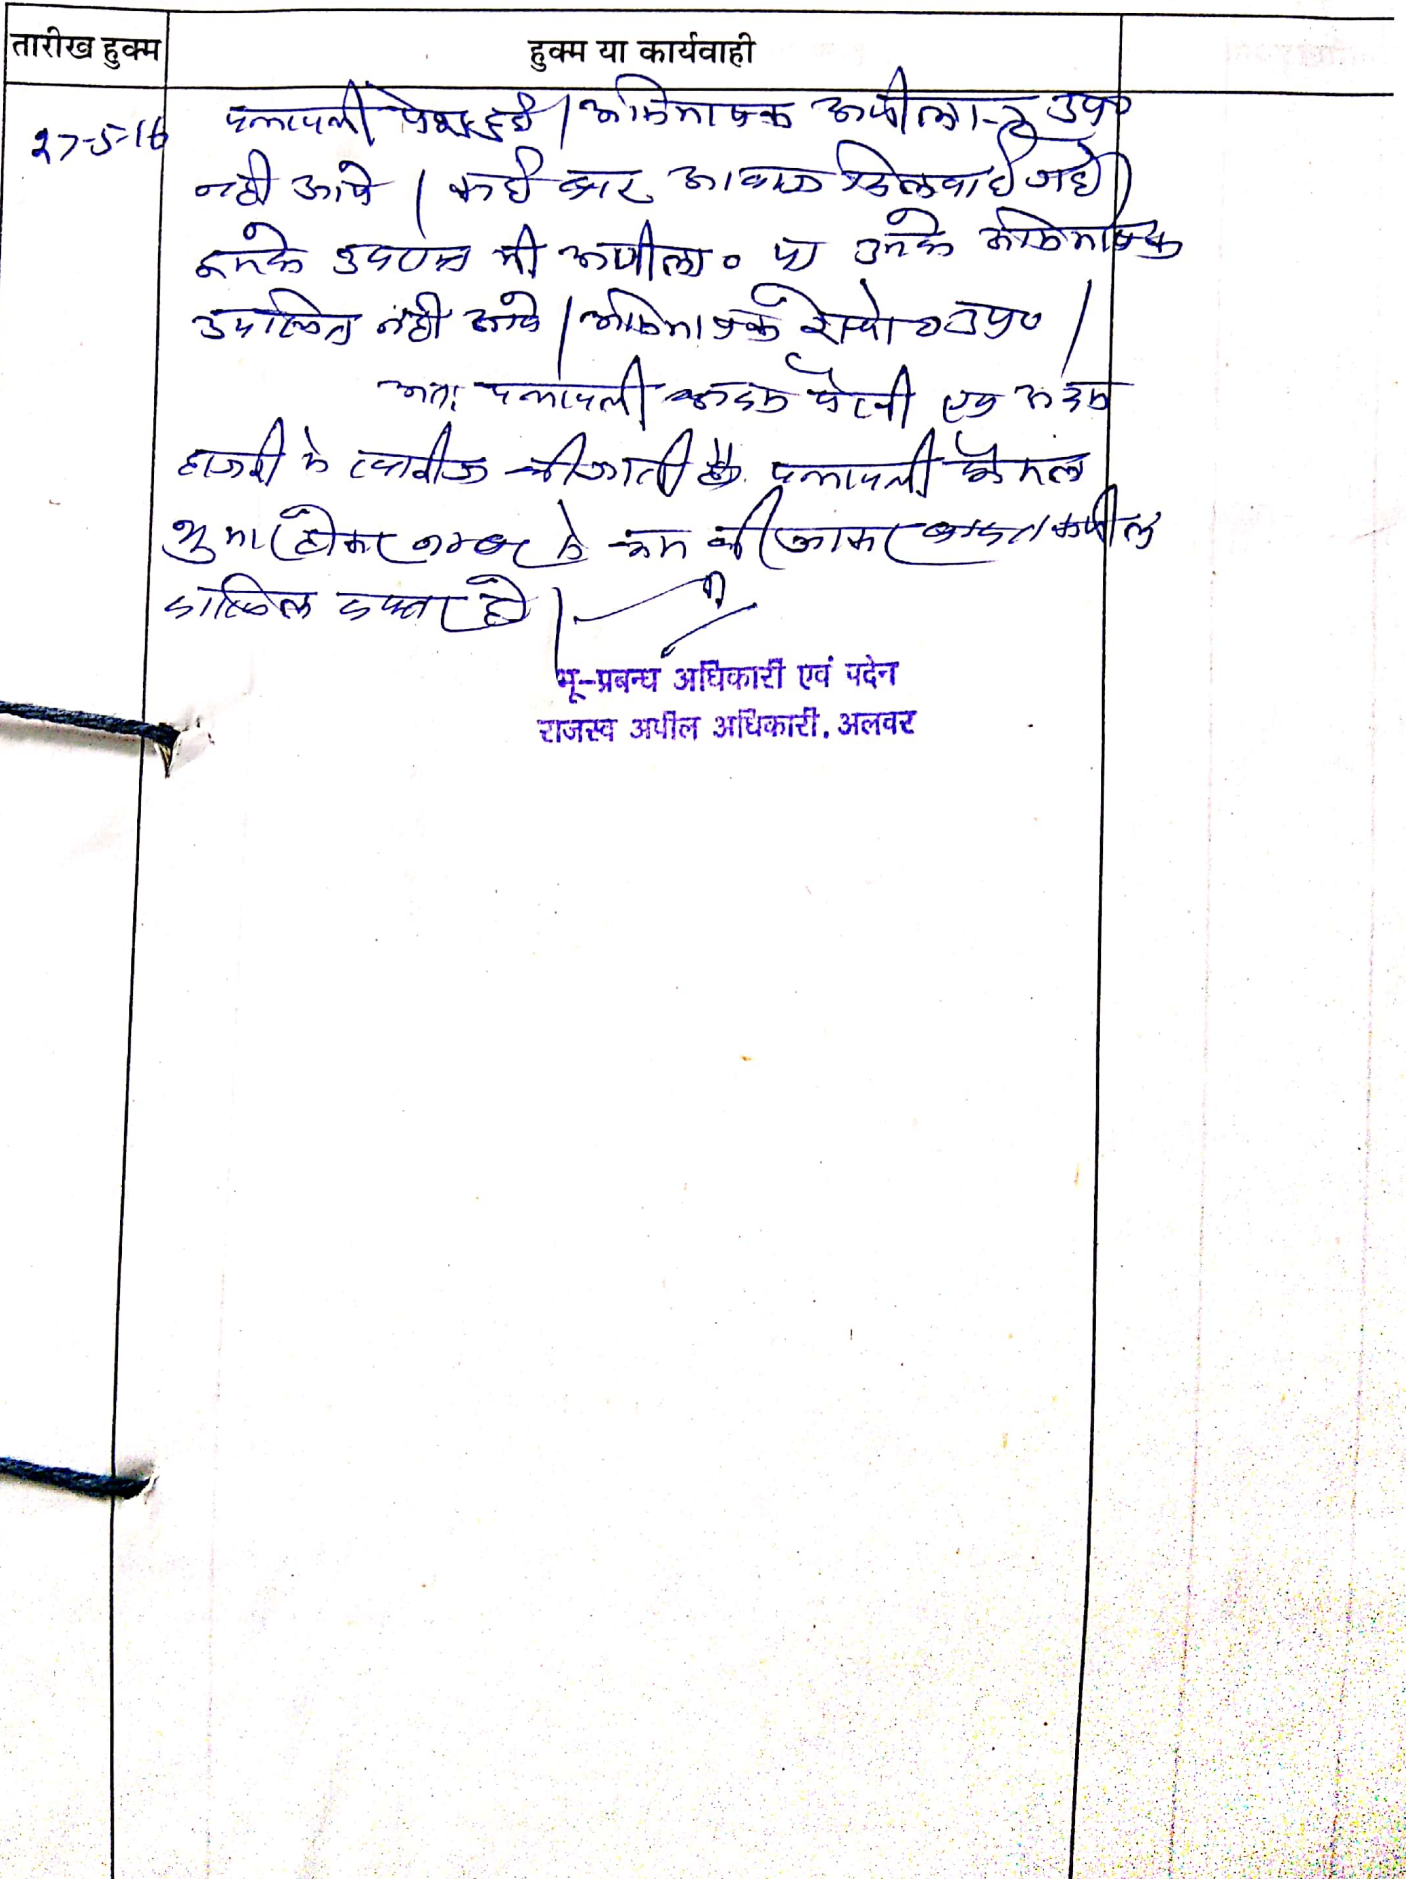 तारीख हुक्म
हुक्म या कार्यवाही
27-5-16
पत्रावली पेश हुई। अभिभाषक अपीलान्ट उप०
नही आये। कई बार आवाज दिलवाई गई
इसके उपरान्त भी अपीला० या उनके अभिभाषक
उपस्थित नही आये। अभिभाषक रेस्पो० उप०।
अतः पत्रावली अदम पैरवी एवं अदम
हाजरी मे खारीज की जाती है। पत्रावली फैसल
शुमार होकर नम्बर से कम की जाकर अपील
दाखिल दफ्तर हो।
भू-प्रबन्ध अधिकारी एवं पदेन
राजस्व अपील अधिकारी, अलवर